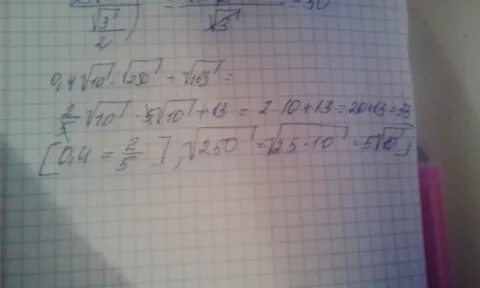 √3/2) = √3 = 30
0,4√10 · √250 + √169 =
2/5 √10 · 5√10 + 13 = 2 · 10 + 13 = 20 + 13 = 33
[0,4 = 2/5], √250 = √25 · 10 = 5√10]